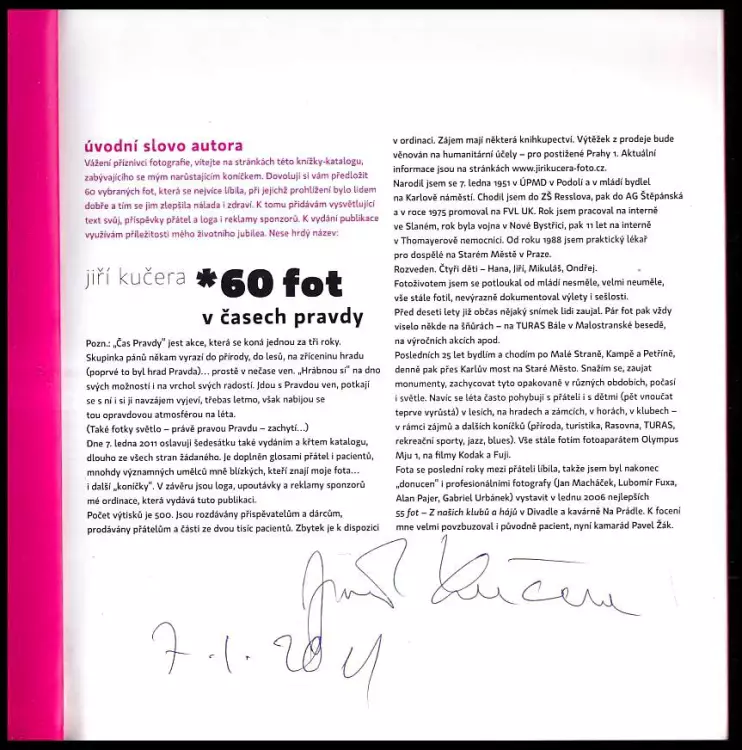 úvodní slovo autora
Vážení příznivci fotografie, vítejte na stránkách této knížky-katalogu,
zabývajícího se mým narůstajícím koníčkem. Dovoluji si vám předložit
60 vybraných fot, která se nejvíce líbila, při jejichž prohlížení bylo lidem
dobře a tím se jim zlepšila nálada i zdraví. K tomu přidávám vysvětlující
text svůj, příspěvky přátel a loga i reklamy sponzorů. K vydání publikace
využívám příležitosti mého životního jubilea. Nese hrdý název:
jiří kučera *60 fot
v časech pravdy
Pozn.: „Čas Pravdy" jest akce, která se koná jednou za tři roky.
Skupinka pánů někam vyrazí do přírody, do lesů, na zříceninu hradu
(poprvé to byl hrad Pravda)... prostě v nečase ven. „Hrábnou si" na dno
svých možností i na vrchol svých radostí. Jdou s Pravdou ven, potkají
se s ní i si jí navzájem vyjeví, třebas letmo, však nabijou se
tou opravdovou atmosférou na léta.
(Také fotky světlo – právě pravou Pravdu – zachytí...)
Dne 7. ledna 2011 oslavuji šedesátku také vydáním a křtem katalogu,
dlouho ze všech stran žádaného. Je doplněn glosami přátel i pacientů,
mnohdy významných umělců mně blízkých, kteří znají moje fota...
i další „koníčky". V závěru jsou loga, upoutávky a reklamy sponzorů
mé ordinace, která vydává tuto publikaci.
Počet výtisků je 500. Jsou rozdávány přispěvatelům a dárcům,
prodávány přátelům a části ze dvou tisíc pacientů. Zbytek je k dispozici
v ordinaci. Zájem mají některá knihkupectví. Výtěžek z prodeje bude
věnován na humanitární účely – pro postižené Prahy 1. Aktuální
informace jsou na stránkách www.jirikucera-foto.cz.
Narodil jsem se 7. ledna 1951 v ÚPMD v Podolí a v mládí bydlel
na Karlově náměstí. Chodil jsem do ZŠ Resslova, pak do AG Štěpánská
a v roce 1975 promoval na FVL UK. Rok jsem pracoval na interně
ve Slaném, rok byla vojna v Nové Bystřici, pak 11 let na interně
v Thomayerově nemocnici. Od roku 1988 jsem praktický lékař
pro dospělé na Starém Městě v Praze.
Rozveden. Čtyři děti – Hana, Jiří, Mikuláš, Ondřej.
Fotoživotem jsem se potloukal od mládí nesměle, velmi neuměle,
vše stále fotil, nevýrazně dokumentoval výlety i sešlosti.
Před deseti lety již občas nějaký snímek lidi zaujal. Pár fot pak vždy
viselo někde na šňůrách – na TURAS Bále v Malostranské besedě,
na výročních akcích apod.
Posledních 25 let bydlím a chodím po Malé Straně, Kampě a Petříně,
denně pak přes Karlův most na Staré Město. Snažím se, zaujat
monumenty, zachycovat tyto opakovaně v různých obdobích, počasí
i světle. Navíc se léta často pohybuji s přáteli i s dětmi (pět vnoučat
teprve vyrůstá) v lesích, na hradech a zámcích, v horách, v klubech –
v rámci zájmů a dalších koníčků (příroda, turistika, Rasovna, TURAS,
rekreační sporty, jazz, blues). Vše stále fotím fotoaparátem Olympus
Mju 1, na filmy Kodak a Fuji.
Fota se poslední roky mezi přáteli líbila, takže jsem byl nakonec
„donucen" i profesionálními fotografy (Jan Macháček, Lubomír Fuxa,
Alan Pajer, Gabriel Urbánek) vystavit v lednu 2006 nejlepších
55 fot – Z našich klubů a hájů v Divadle a kavárně Na Prádle. K focení
mne velmi povzbuzoval i původně pacient, nyní kamarád Pavel Žák.
Jiří Kučera
7.1.2011